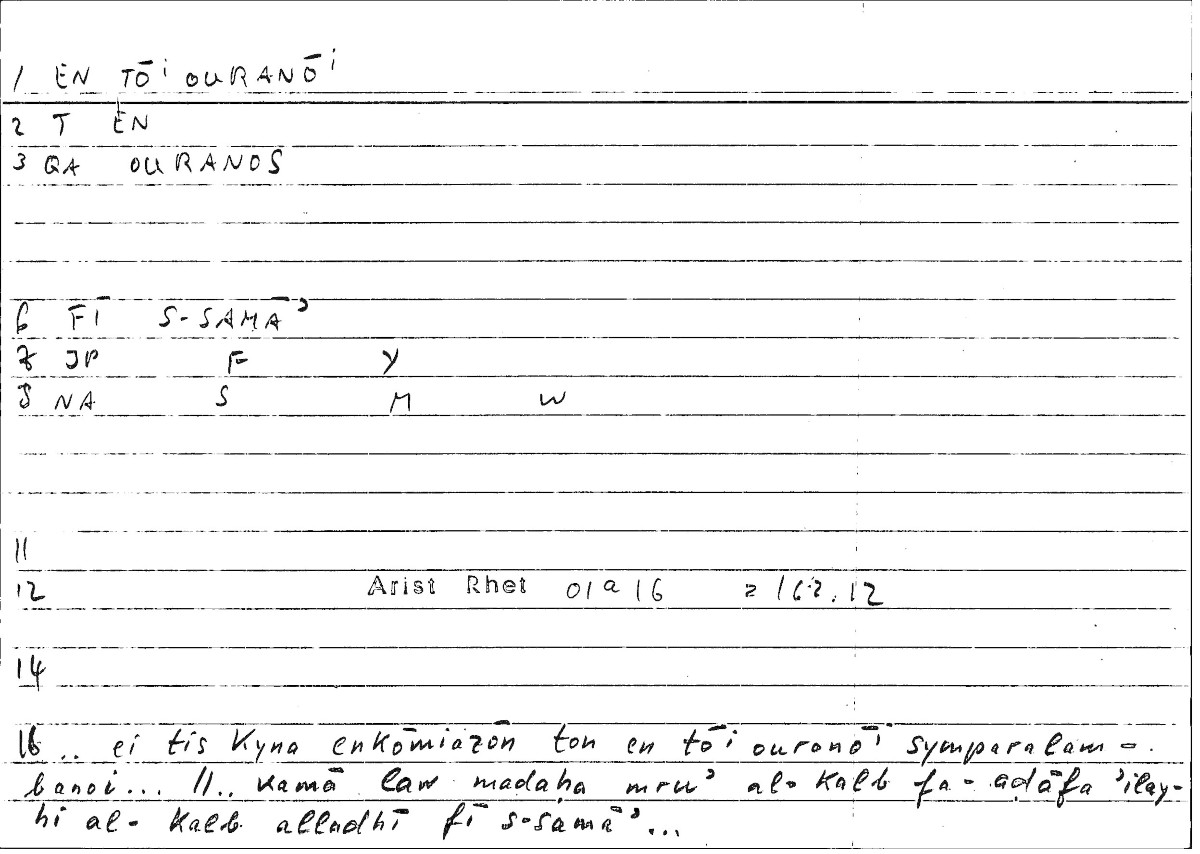 1 EN TŌⁱ OURANŌⁱ
2 T EN
3 QA OURANOS
6 FĪ S-SAMĀʾ
7 JP F Y
8 NA S M W
11
12 Arist Rhet 01a16 = 162.12
14
16 .. ei tis Kyna enkōmiazōn ton en tōⁱ ouranōⁱ symparalam-
banoi... //.. kamā law madaḥa mruʾ al-Kalb fa-aḍāfa ʾilay-
hi al-Kalb alladhī fī s-samāʾ...